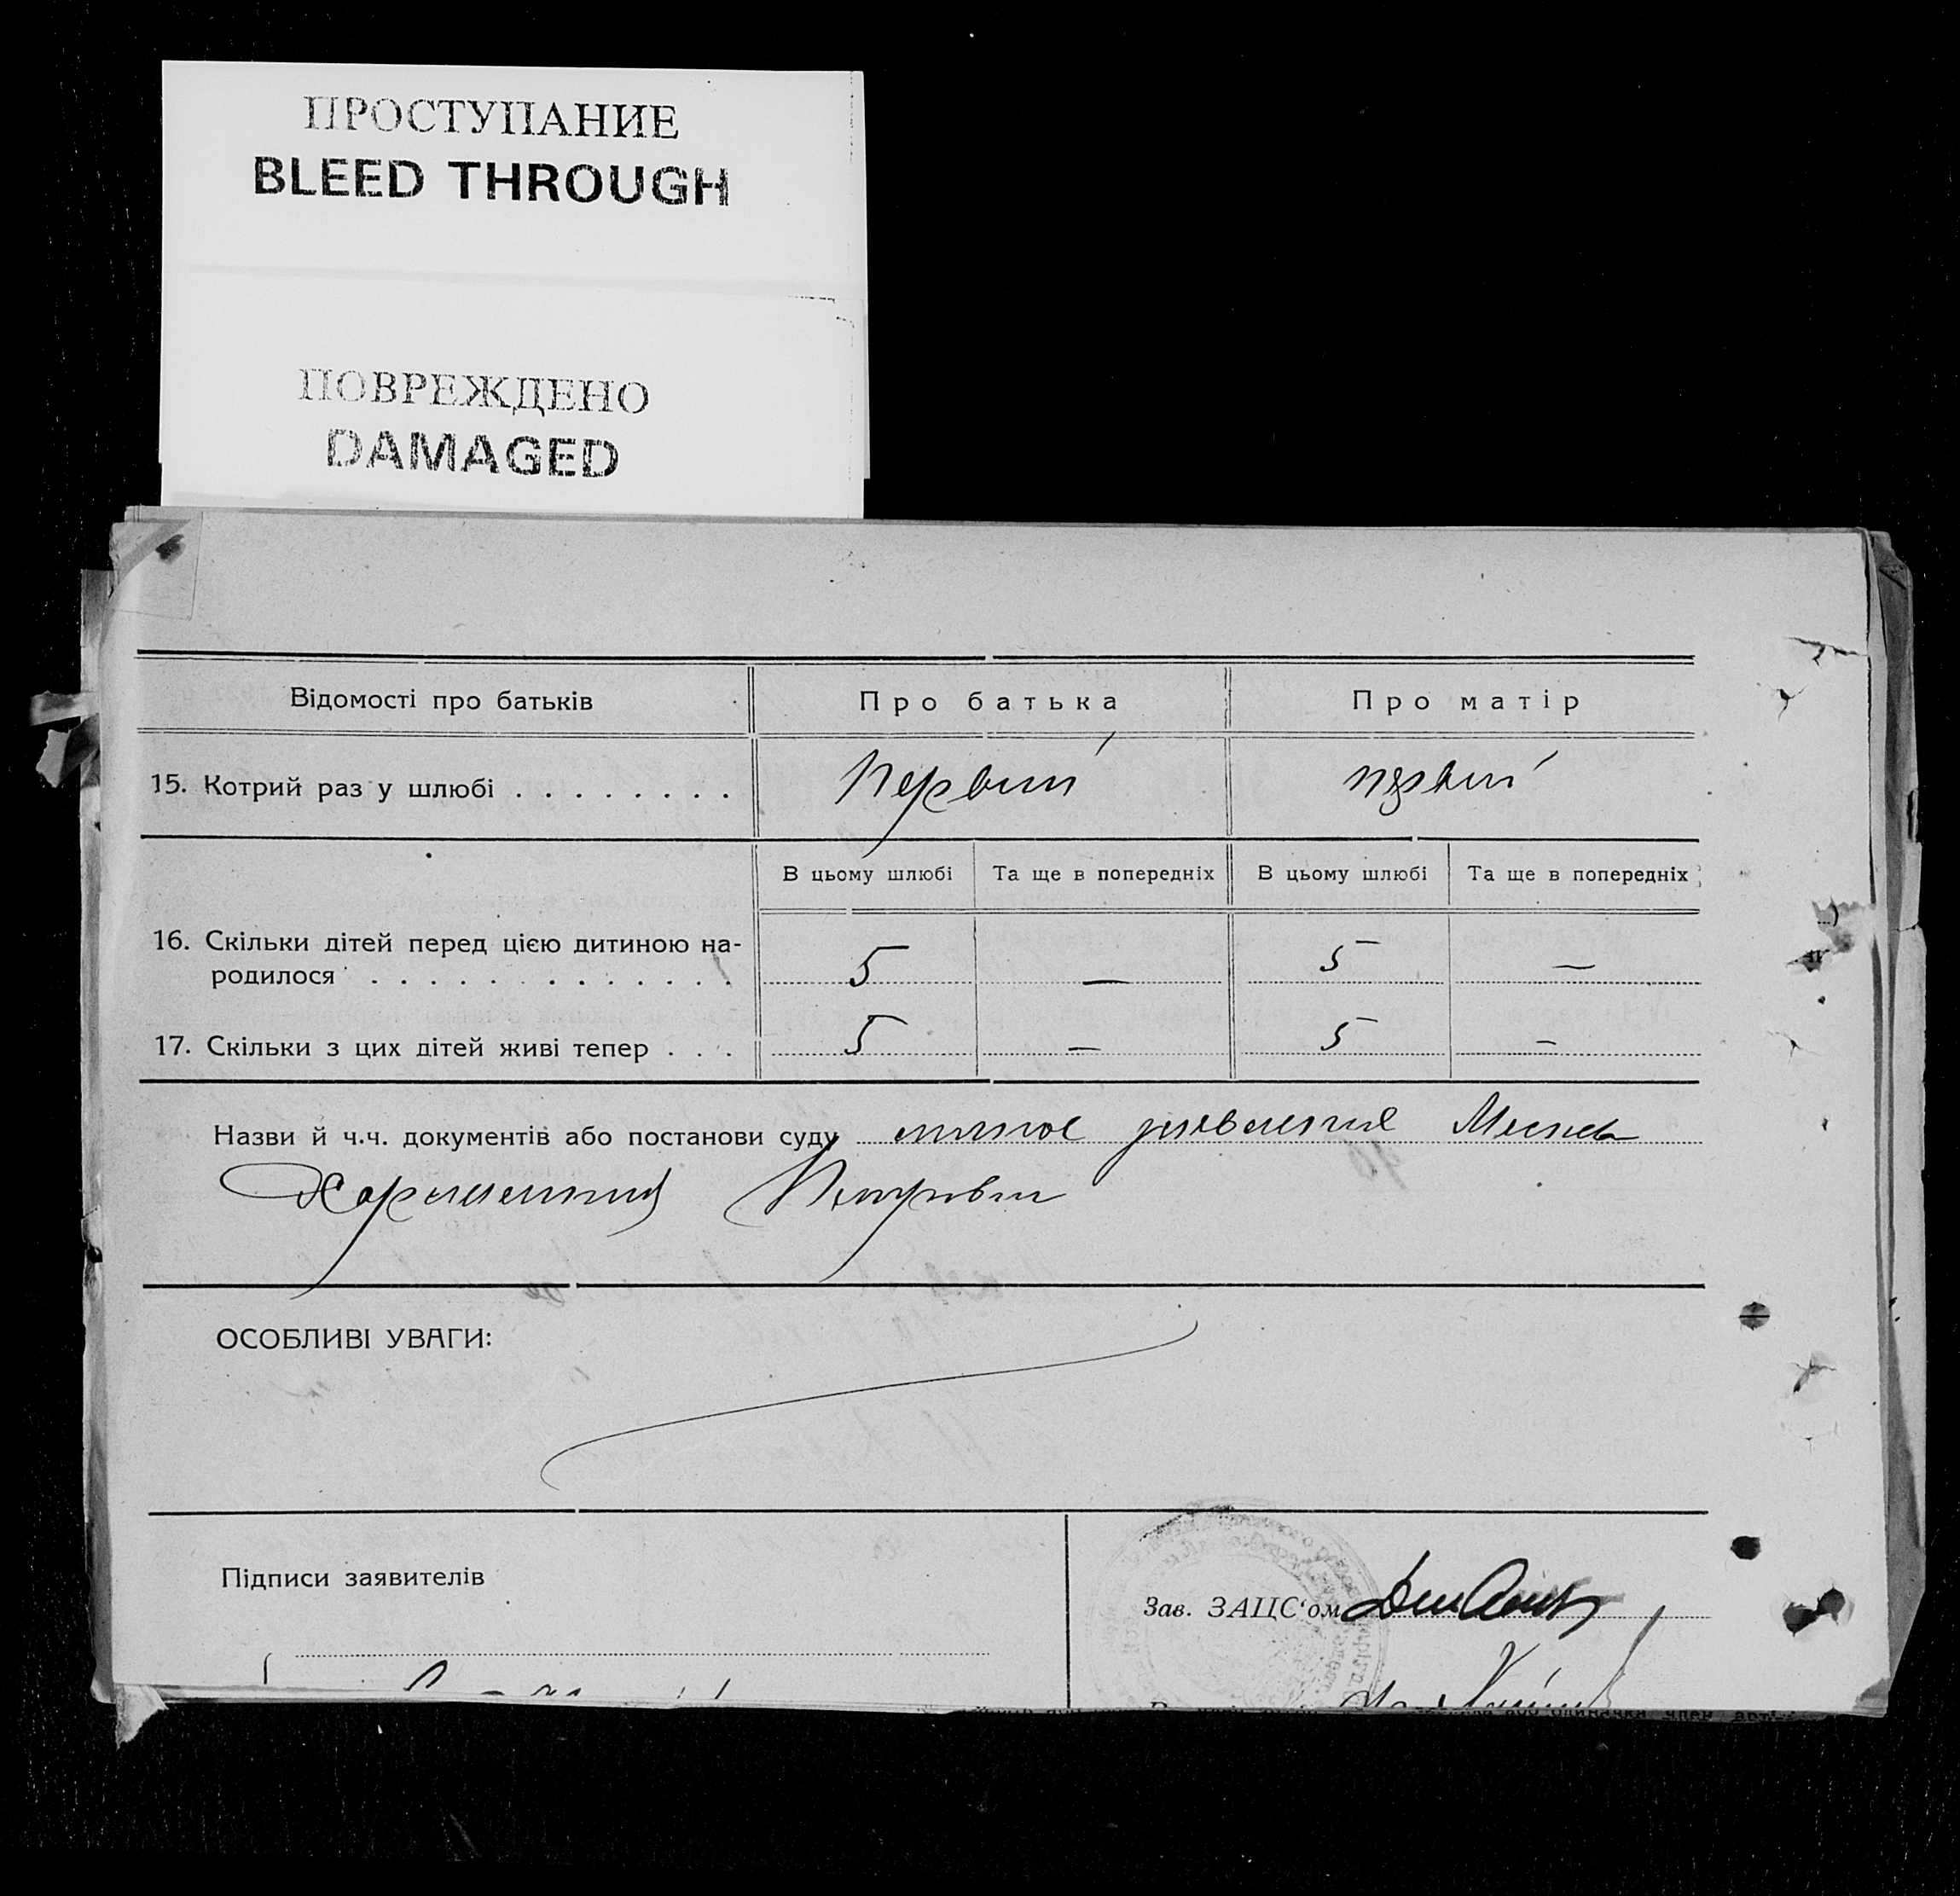 ПРОСТУПАНИЕ
BLEED THROUGH
ПОВРЕЖДЕНО
DAMAGED
Відомості про батьків Про батька Про матір
15. Котрий раз у шлюбі . . . . . . . . Первый первый
В цьому шлюбі Та ще в попередніх В цьому шлюбі Та ще в попередніх
16. Скільки дітей перед цією дитиною на-
родилося . . . . . . . . . . . . . 5 — 5 —
17. Скільки з цих дітей живі тепер . . . 5 — 5 —
Назви й ч.ч. документів або постанови суду личное заявление
ОСОБЛИВІ УВАГИ:
Підписи заявителів
Зав. ЗАЦС‘ом